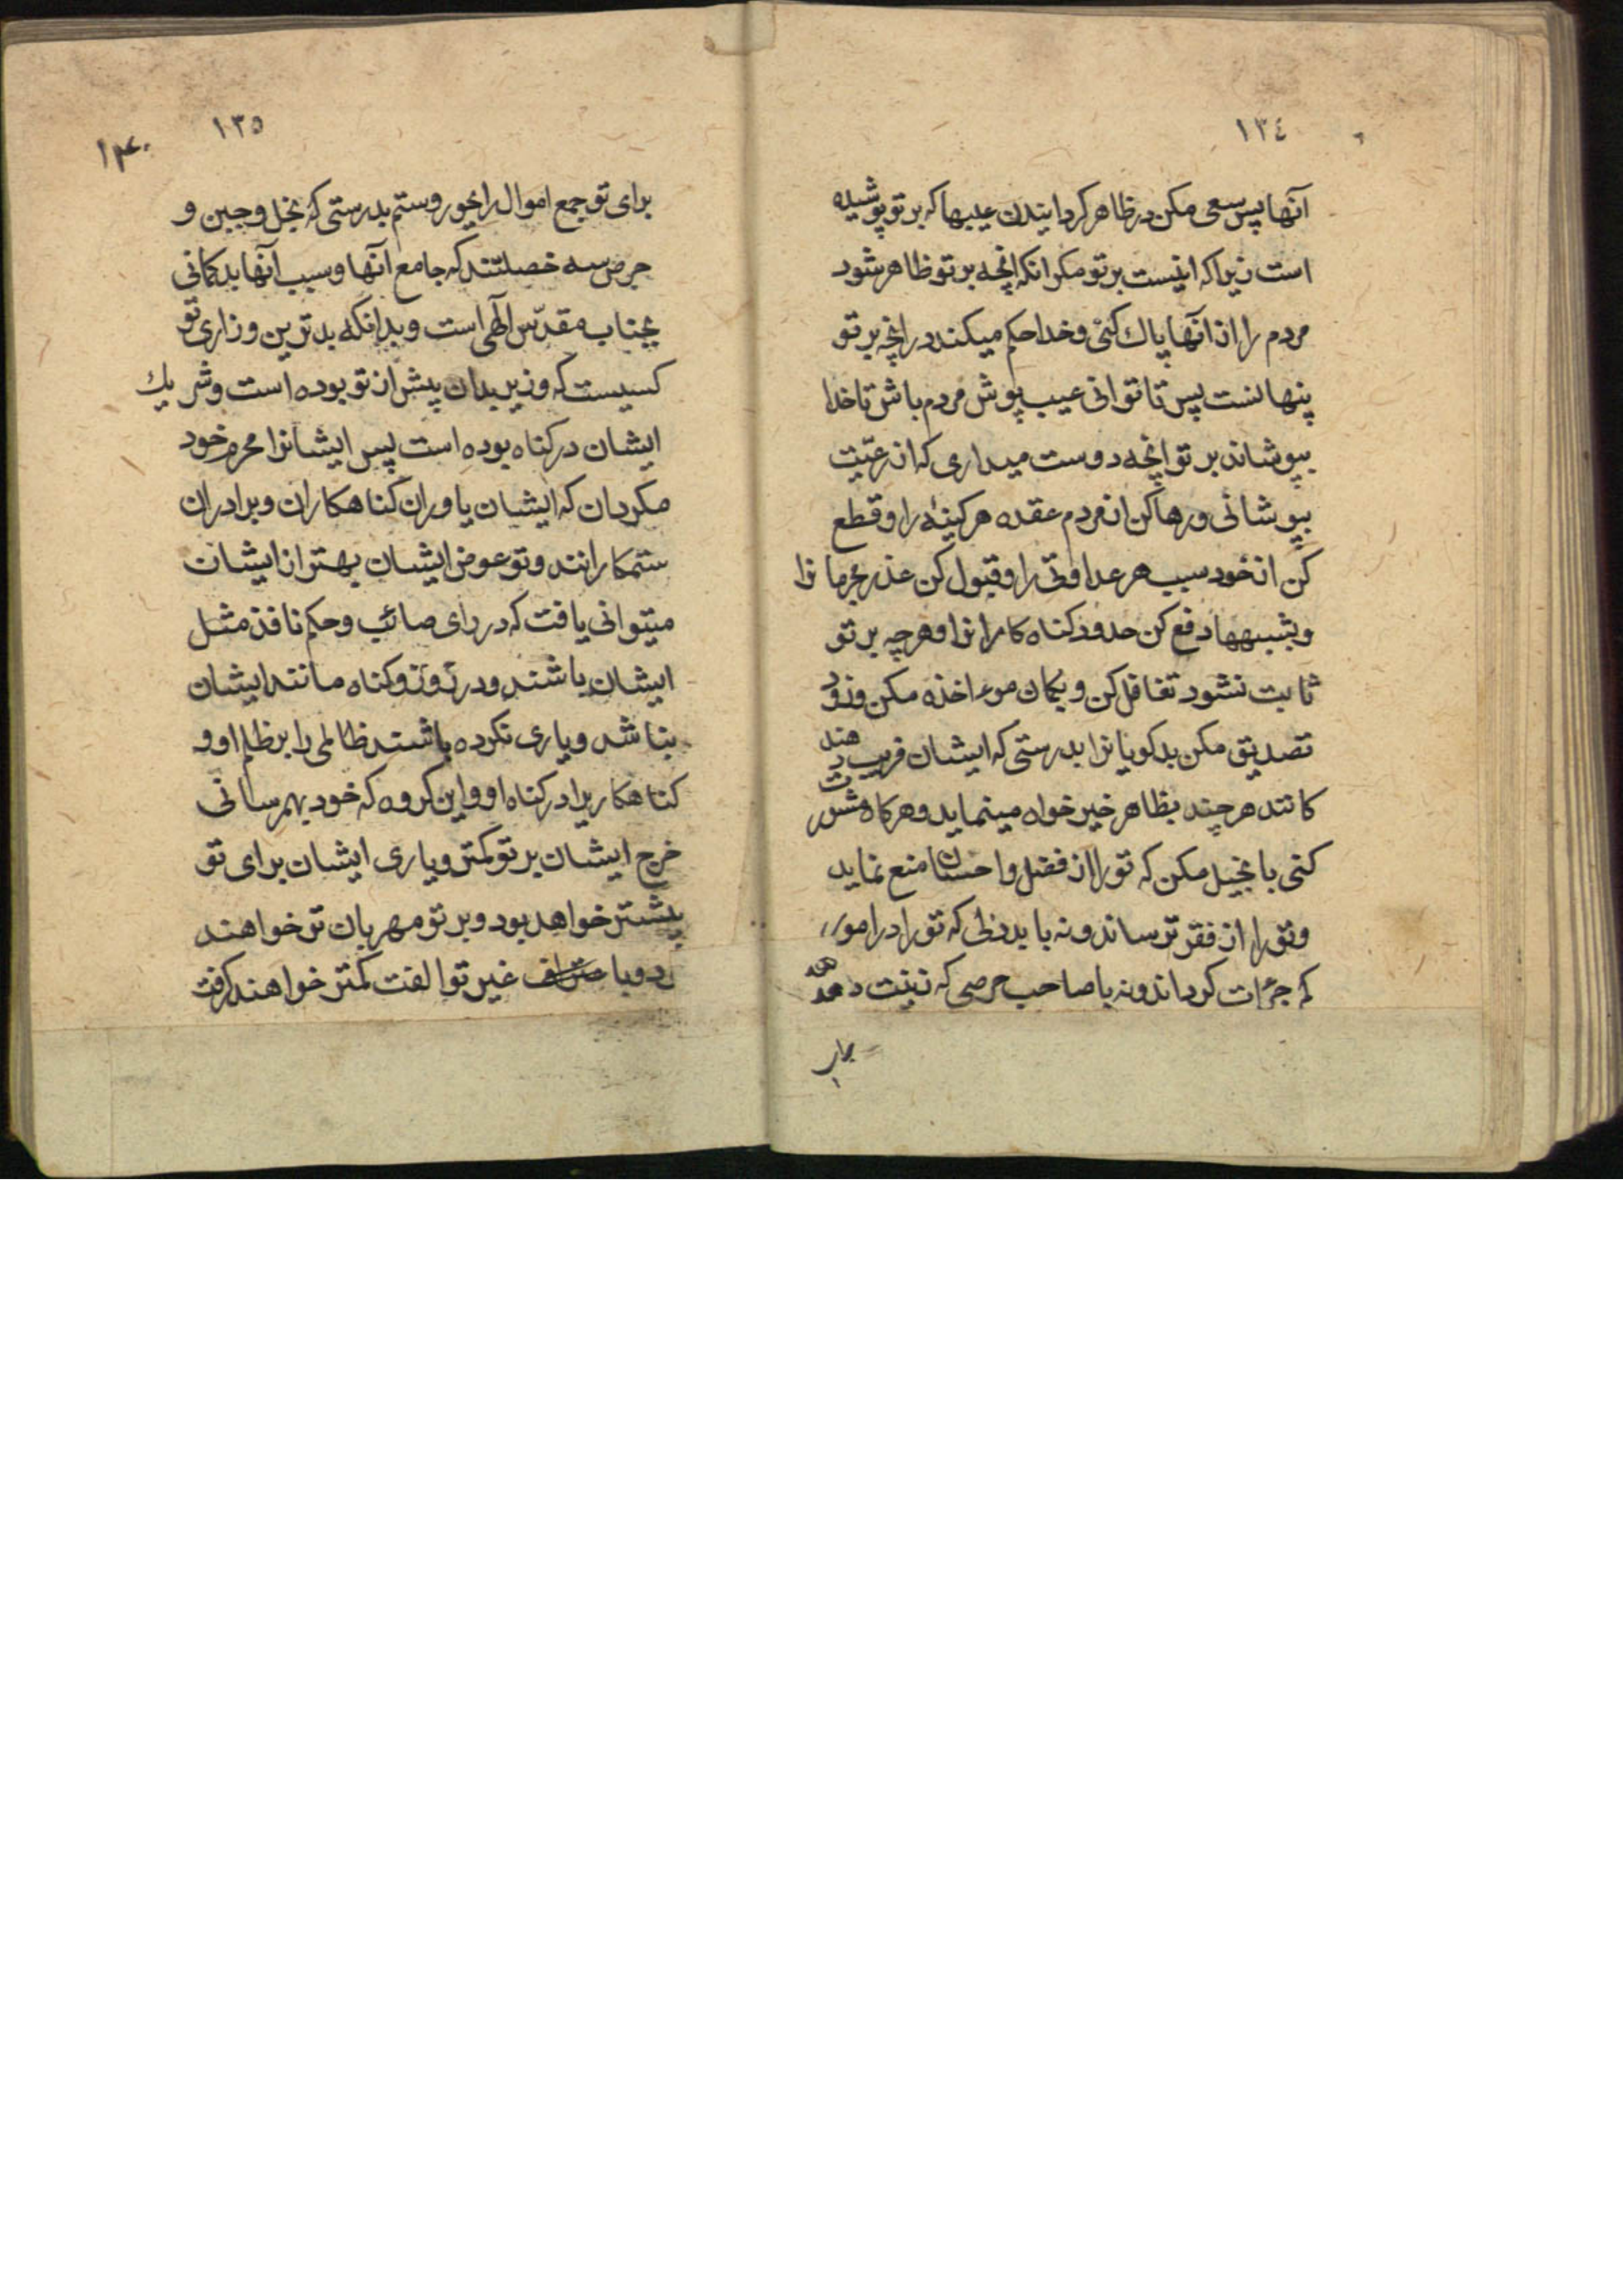 ١٣٤
آنها پس سعی مکن در ظاهر کردانیدن عیبها که بر تو پوشیده
است زیرا که اینست بر تو مکر انکه انچه بر تو ظاهر شود
مردم را از آنها پاک کنی و خدا حکم میکند در انچه بر تو
پنهانست پس تا توانی عیب پوش مردم باش تا خدا
بپوشاند بر تو انچه دوست میداری که از رعیّت
بپوشانی و رها کن از مردم عقده هر کینهٔ را و قطع
کن از خود سبب هر عداوتی را و قبول کن عذر مجرمانرا
و بشبهها دفع کن حدود کناه کارانرا و هر چه بر تو
ثابت نشود تغافل کن و بکمان موءاخذه مکن و زود
تصدیق مکن بدکویانرا بدرستی که ایشان فریب دهند
کانند هر چند بظاهر خیر خواه مینماید و هرکاه مشورت
کنی با بخیل مکن که تو را از فضل و احسان منع نماید
و تو را از فقر ترساند و نه با بددلی که تو را در امور
کم جرٔات کرداند و نه با صاحب حرصی که زینت دهد
برا
١٣٥
١٣٠
برای تو جمع اموال را بجور و ستم بدرستی که بخل و جبن و
حرص سه خصلتند که جامع آنها و سبب آنها بدکمانی
بجناب مقدّس آلهی است و بدانکه بدترین وزاری تو
کسیست که وزیر بدان پیش از تو بوده است و شریک
ایشان در کناه بوده است پس ایشانرا محرم خود
مکردان که ایشان یاوران کناهکاران و برادران
ستمکارانند و تو عوض ایشان بهتر از ایشان
میتوانی یافت که در رای صائب و حکم نافذ مثل
ایشان باشند و در وزر و کناه مانند ایشان
نباشد و یاری نکرده باشند ظالمی را بر ظلم او و
کناهکاریرا در کناه او و این کروه که خود بهم رسانی
خرج ایشان بر تو کمتر و یاری ایشان برای تو
بیشتر خواهد بود و بر تو مهربان تر خواهند
بود و با غیر تو الفت کمتر خواهند کرفت